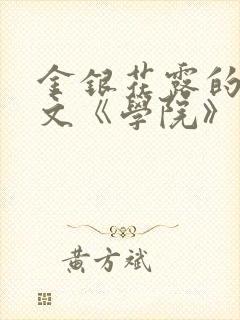 金银花露的
文《學院》
黄方斌